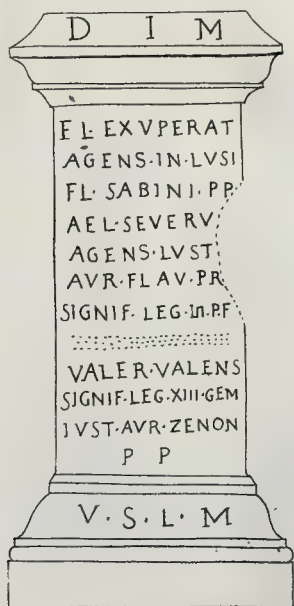 D I M
FL· EXVPERAT
AGENS·IN·LVSI
FL· SABINI·PP·
AEL·SEVERV
AGENS·LVST
AVR·FLAV·PR
SIGNIF· LEG·III·P·F
VALER·VALENS
SIGNIF·LEG·XIII·GEM
IVST·AVR·ZENON
P P
V·S·L·M